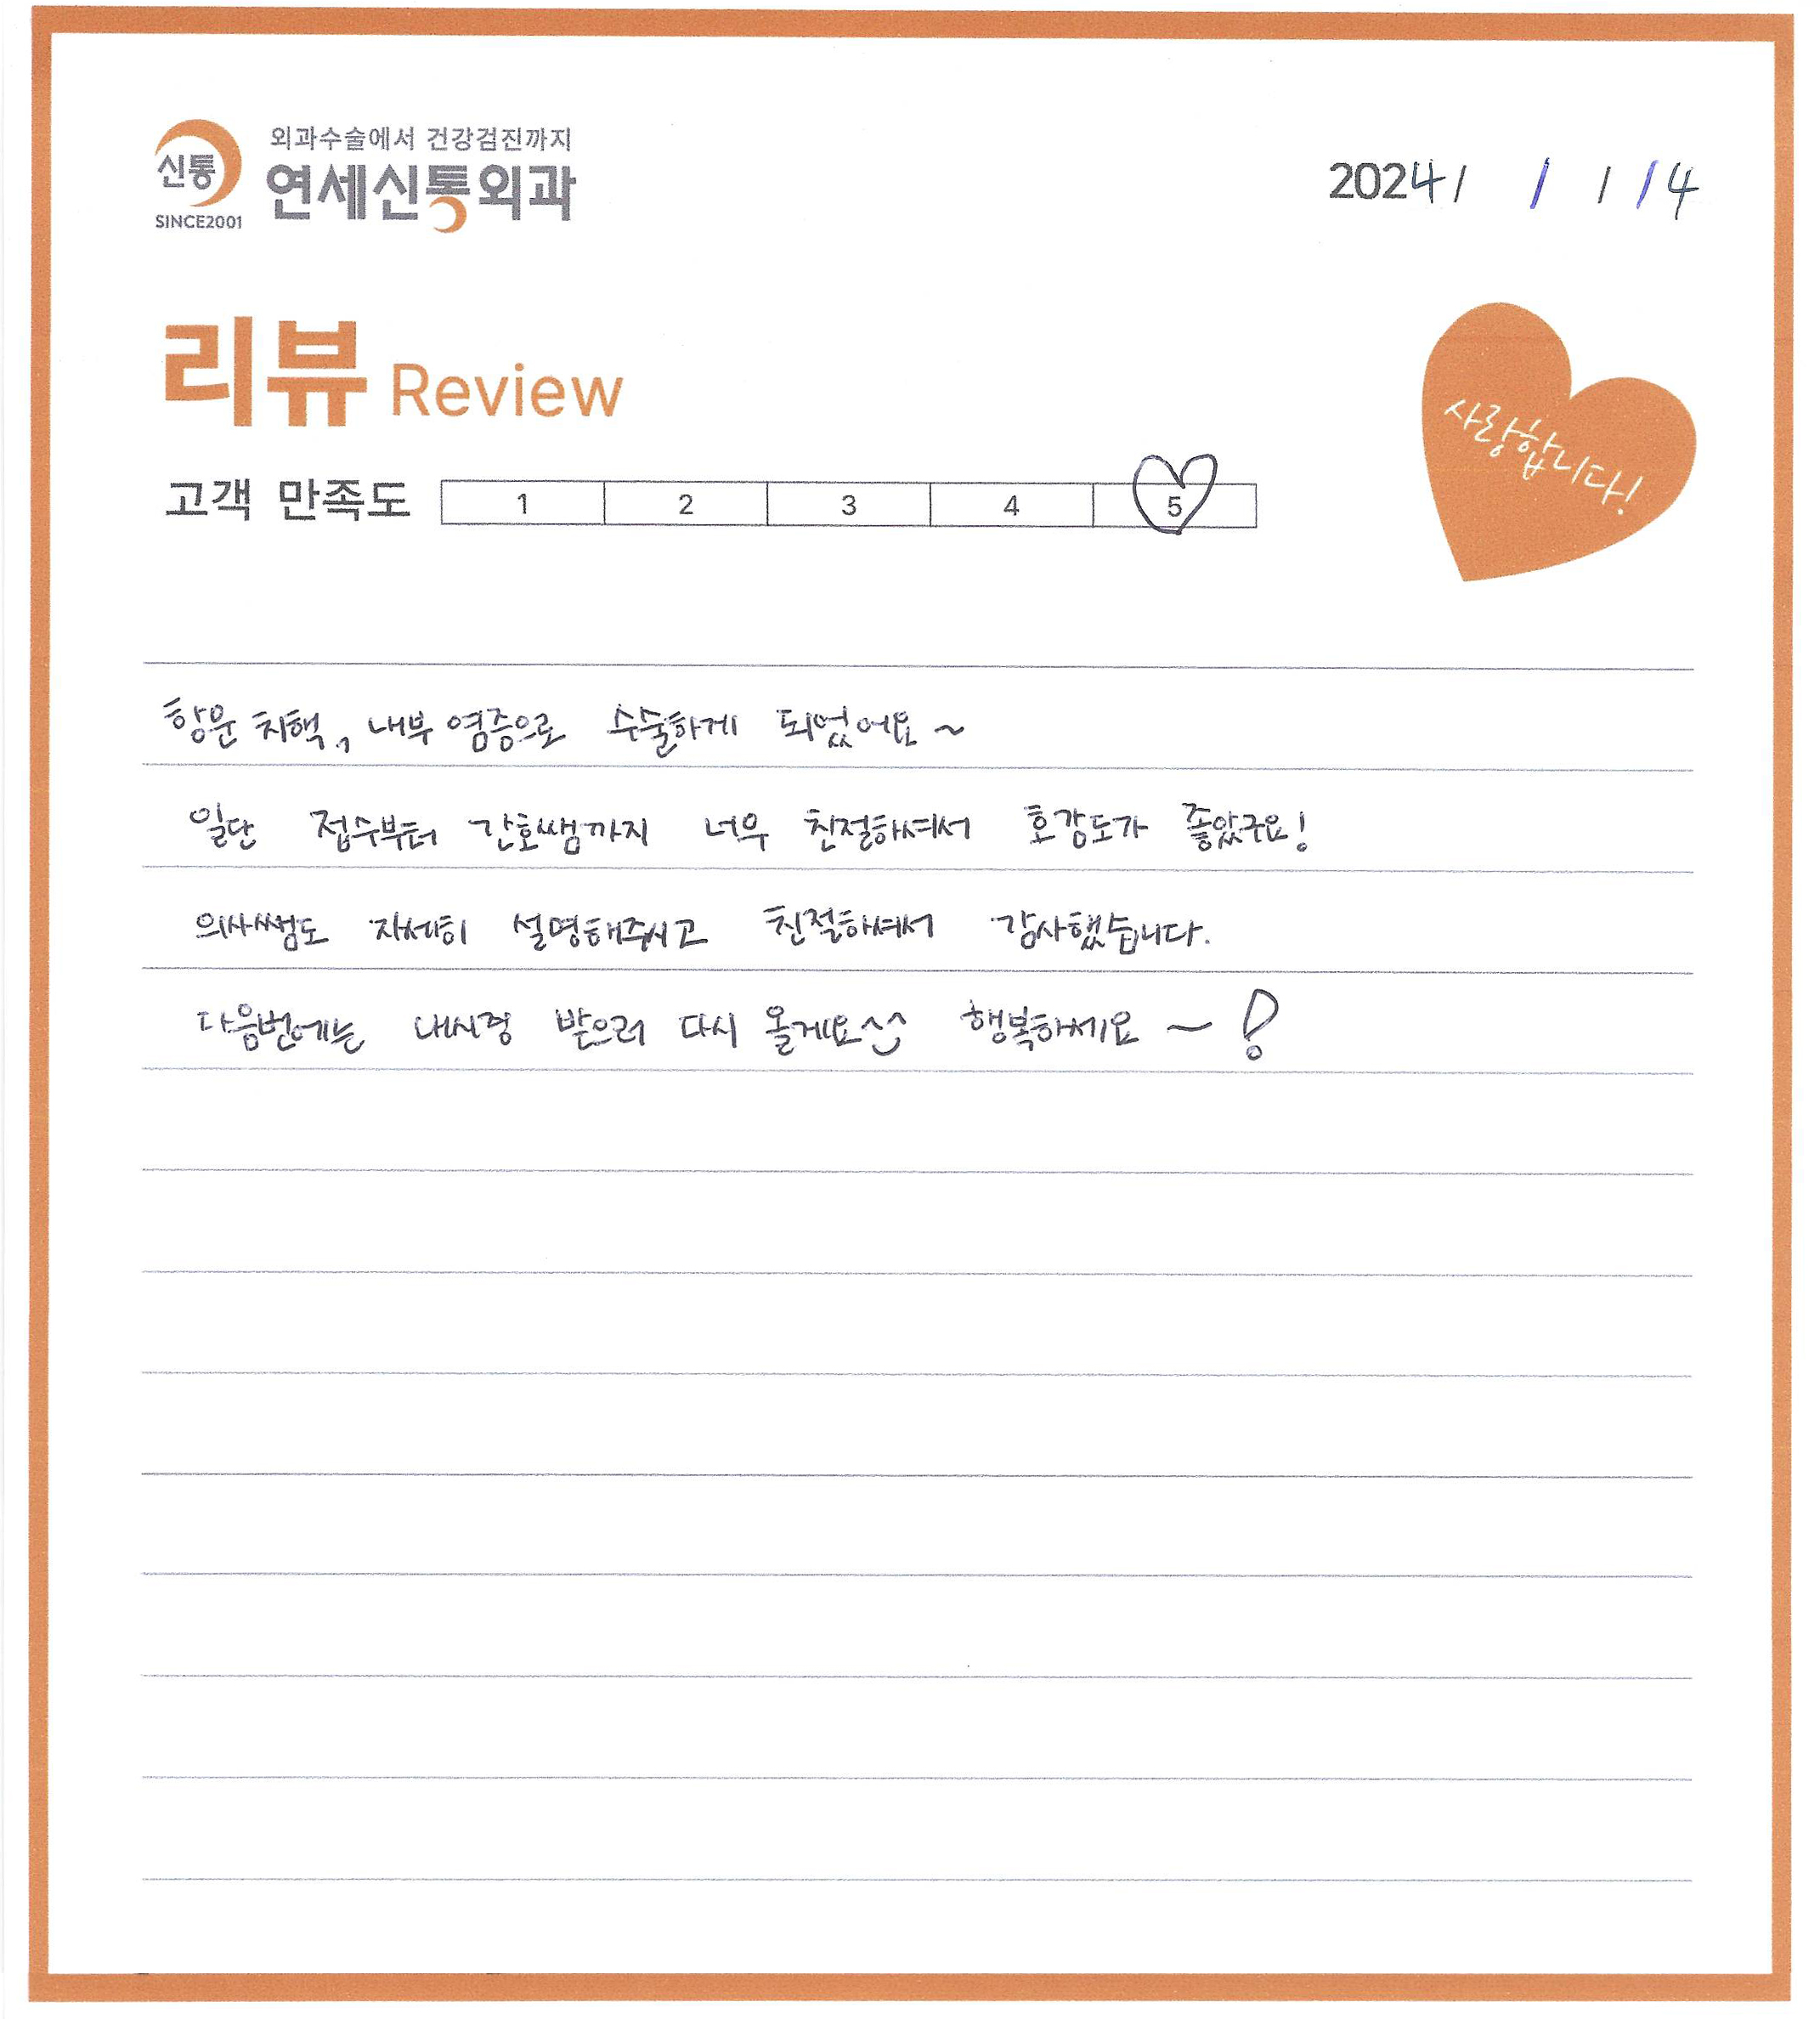 신통
SINCE2001
외과수술에서 건강검진까지
연세신통외과
2024 / 1 / 14
리뷰 Review
사랑합니다!
고객 만족도 1 2 3 4 5
항문 치핵, 내부 염증으로 수술하게 되었어요~
일단 접수부터 간호쌤까지 너무 친절하셔서 호감도가 좋았구요!
의사쌤도 자세히 설명해주시고 친절하셔서 감사했습니다.
다음번에는 내시경 받으러 다시 올게요^^ 행복하세요~!